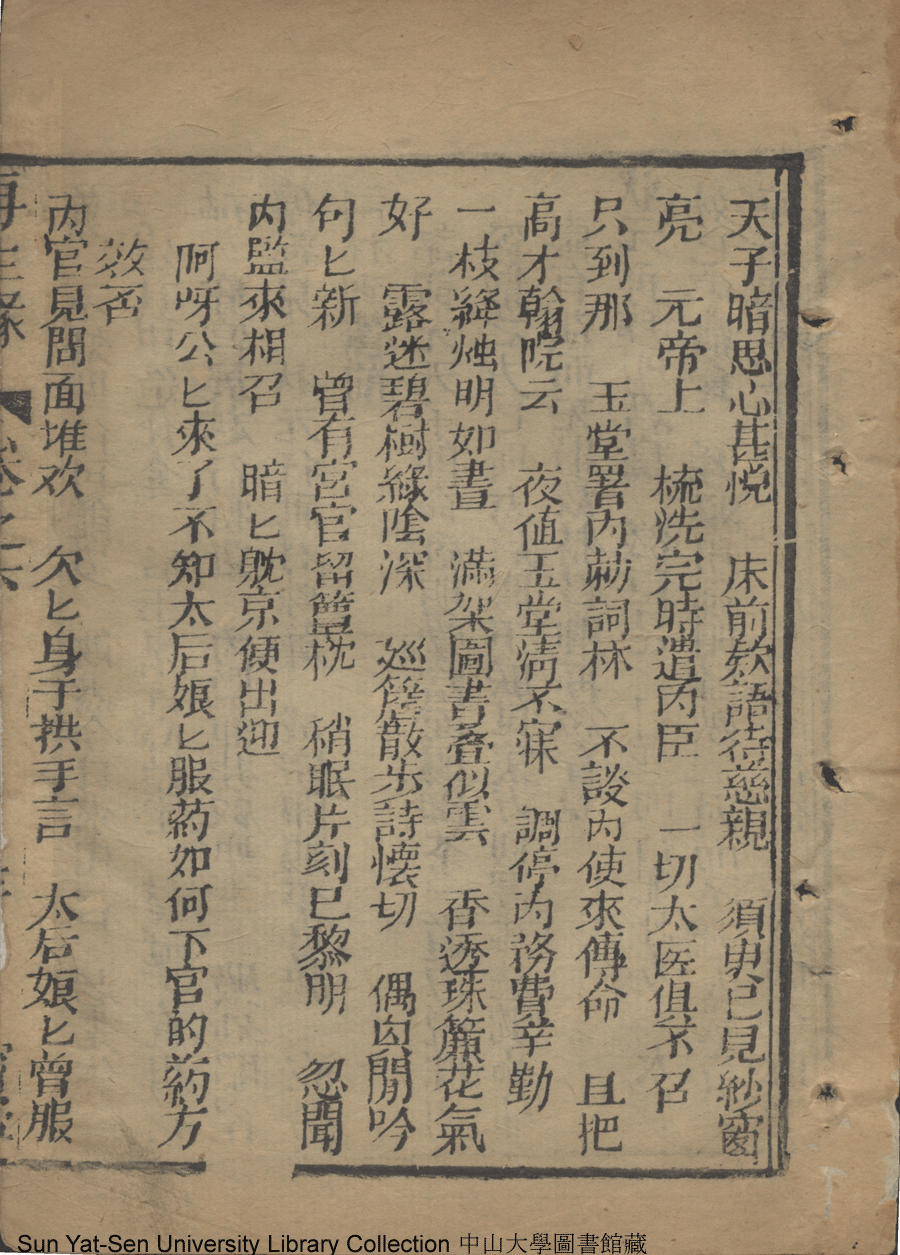 天子暗思心甚悅　床前欸語待慈親　須臾已見紗窗
亮　元帝上　梳洗完時遣内臣　一切太医俱不召
只到那　玉堂署内勅詞林　不談内使來傳命　且把
高才翰院云　夜值玉堂清不寐　調停内務費辛勤
一枝絳烛明如晝　滿架圖書叠似雲　香透珠簾花氣
好　露迷碧樹綠陰深　廵簷散步詩懐切　偶因閒吟
句匕新　曾有宮官留簟枕　稍眠片刻已黎明　忽聞
内監來相召　暗匕躭京便出迎
阿呀公匕來了不知太后娘匕服葯如何下官的葯方
效否
内官見問面堆欢　欠匕身于拱手言　太后娘匕曾服
再生縁　卷之六
Sun Yat-Sen University Library Collection 中山大學圖書館藏